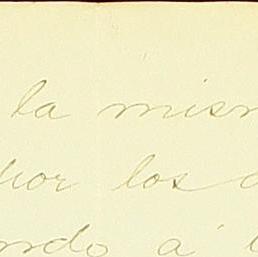 la mism
por los
ndo á